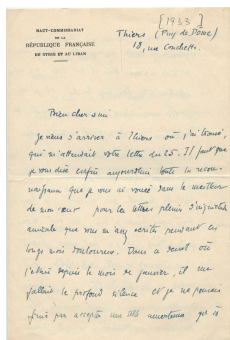 HAUT-COMMISSARIAT
DE LA
RÉPUBLIQUE FRANÇAISE
EN SYRIE ET AU LIBAN
[1933]
Thiers (Puy de Dôme)
18, rue Conchette
Bien cher ami
Je viens d'arriver à Thiers où j'ai trouvé,
qui m'attendait votre lettre du 25. Il faut que
je vous dise enfin aujourd'hui toute la recon-
naissance que je vous ai vouée dans le meilleur
de mon cœur pour les lettres pleines d'
amicale que vous m'avez écrites pendant ces
longs mois douloureux. Dans
j'étais depuis le mois de janvier, il me
fallait le profond silence et je ne pouvais